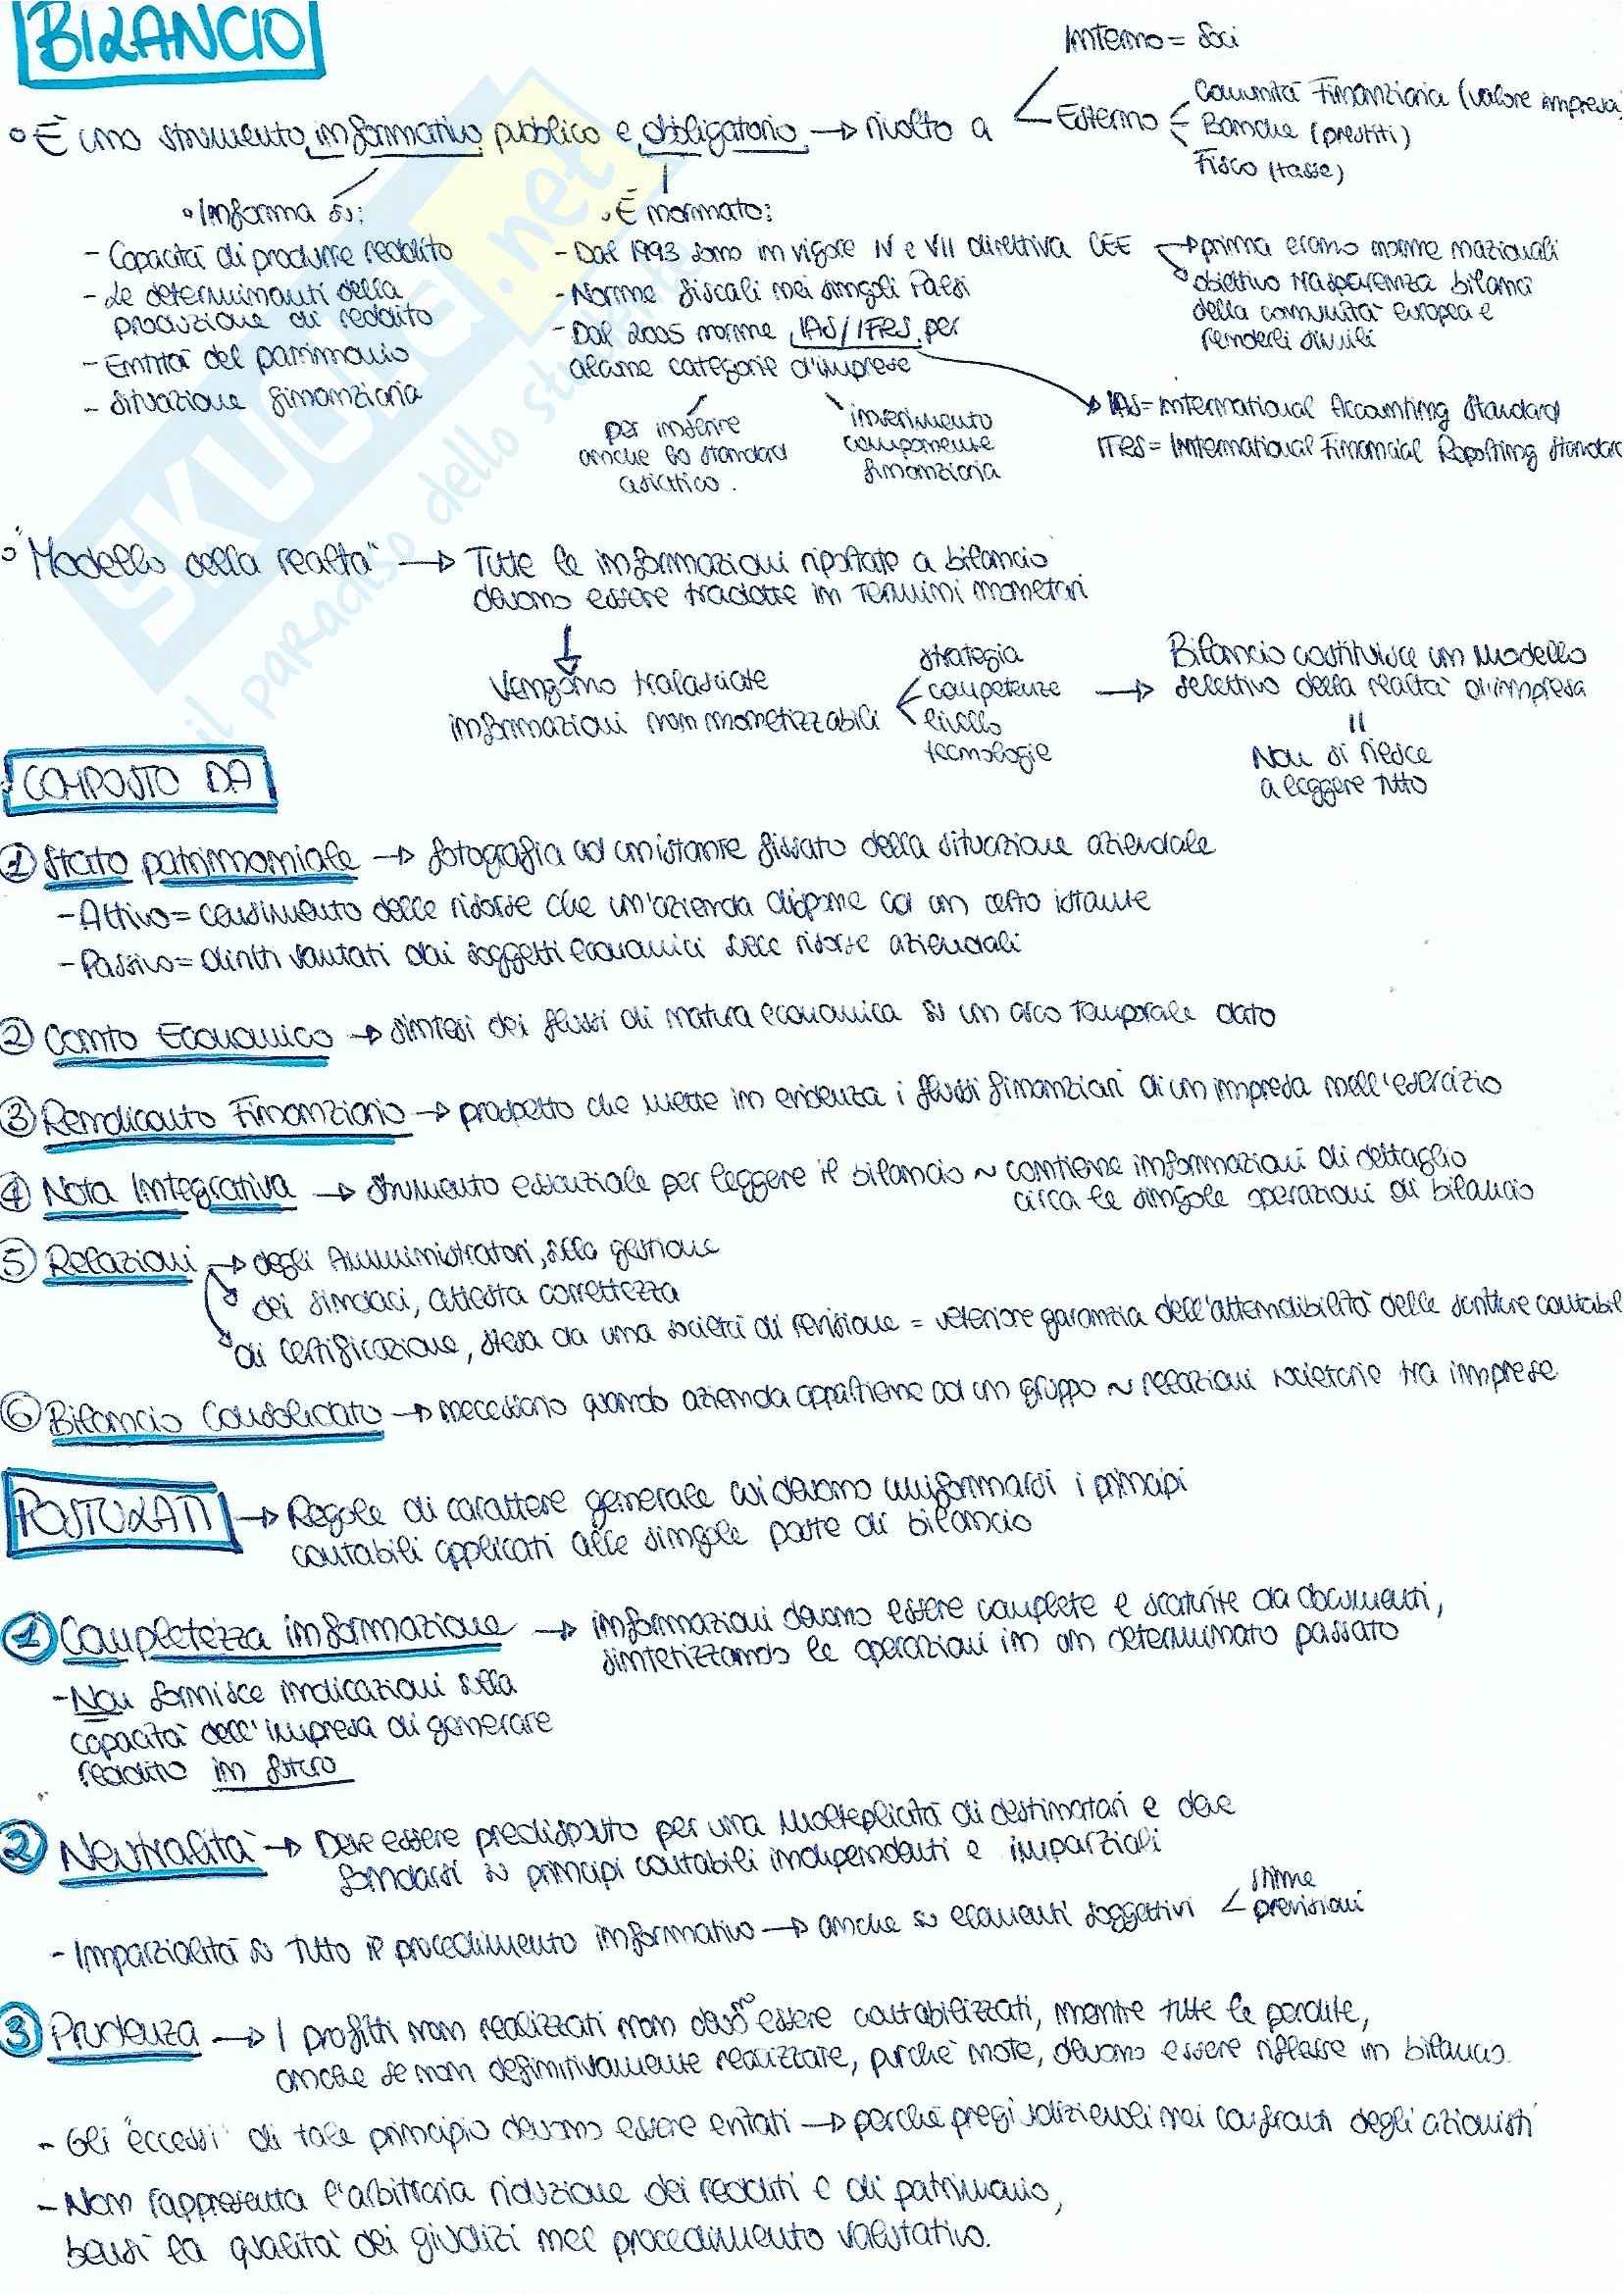 BILANCIO
° È uno strumento informativo pubblico e obbligatorio → rivolto a
Interno = Soci
Esterno
Comunità Finanziaria (valore impresa)
Banche (prestiti)
Fisco (tasse)
° Informa su:
- Capacità di produrre reddito
- Le determinanti della
produzione di reddito
- Entità del patrimonio
- Situazione finanziaria
° È normato:
- Dal 1993 sono in vigore IV e VII direttiva CEE
→ prima erano norme nazionali
obiettivo trasparenza bilanci
della comunità europea e
renderli simili
- Norme fiscali nei singoli Paesi
- Dal 2005 norme IAS/IFRS per
alcune categorie d'imprese
per inserire
anche lo standard
asiatico.
inserimento
componente
finanziaria
IAS = International Accounting Standard
IFRS = International Financial Reporting Standard
° "Modello della realtà" → Tutte le informazioni riportate a bilancio
devono essere tradotte in termini monetari
Vengono tralasciate
informazioni non monetizzabili
strategia
competenze
livello
tecnologie
→ Bilancio costituisce un modello
selettivo della realtà d'impresa
Non si riesce
a leggere tutto
COMPOSTO DA
① Stato patrimoniale → fotografia ad un istante fissato della situazione aziendale
- Attivo = censimento delle risorse che un'azienda dispone ad un certo istante
- Passivo = diritti vantati dai soggetti economici sulle risorse aziendali
② Conto Economico → sintesi dei flussi di natura economica su un arco temporale dato
③ Rendiconto Finanziario → prospetto che mette in evidenza i flussi finanziari di un impresa nell'esercizio
④ Nota Integrativa → strumento essenziale per leggere il bilancio ~ contiene informazioni di dettaglio
circa le singole operazioni di bilancio
⑤ Relazioni → degli Amministratori, sulla gestione
dei sindaci, attesta correttezza
di certificazione, stesa da una società di revisione = ulteriore garanzia dell'attendibilità delle scritture contabili
⑥ Bilancio Consolidato → necessario quando azienda appartiene ad un gruppo ~ relazioni societarie tra imprese
POSTULATI → Regole di carattere generale cui devono uniformarsi i principi
contabili applicati alle singole parte di bilancio
① Completezza informazione → informazioni devono essere complete e scaturite da documenti,
sintetizzando le operazioni in un determinato passato
- Non fornisce indicazioni sulla
capacità dell'impresa di generare
reddito in futuro
② Neutralità → Deve essere predisposto per una molteplicità di destinatari e deve
fondarsi su principi contabili indipendenti e imparziali
- Imparzialità su tutto il procedimento informativo → anche su elementi soggettivi
stime
previsioni
③ Prudenza → I profitti non realizzati non devono essere contabilizzati, mentre tutte le perdite,
anche se non definitivamente realizzate, purchè note, devono essere riflesse in bilancio.
- Gli "eccessi" di tale principio devono essere evitati → perchè pregiudizievoli nei confronti degli azionisti
- Non rappresenta l'arbitraria riduzione dei redditi e di patrimonio,
bensì la qualità dei giudizi nel procedimento valutativo.
SKUOLA.net
il paradiso dello studente